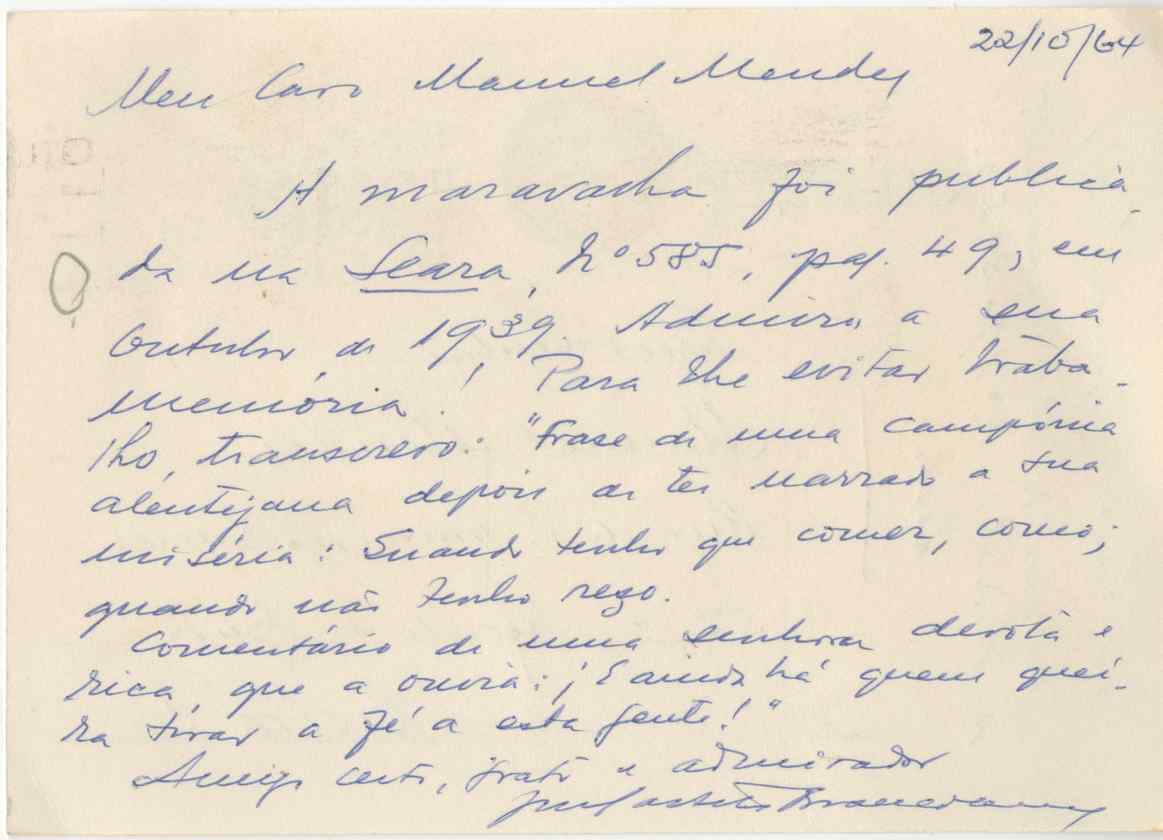 22/10/64
Meu Caro Manuel Mendes
A maravalha foi publica-
da na Seara, Nº 585, pag. 49, em
Outubro de 1939. Admiro a sua
memória! Para lhe evitar traba-
lho, transcrevo: "Frase de uma campónia
alentejana depois de ter narrado a sua
miséria: Quando tenho que comer, como;
quando não tenho rezo.
Comentário de uma senhora devota e
rica que a ouvia: ¡E ainda há quem quei-
ra tirar a fé a esta gente!"
Amigo certo, grato e admirador